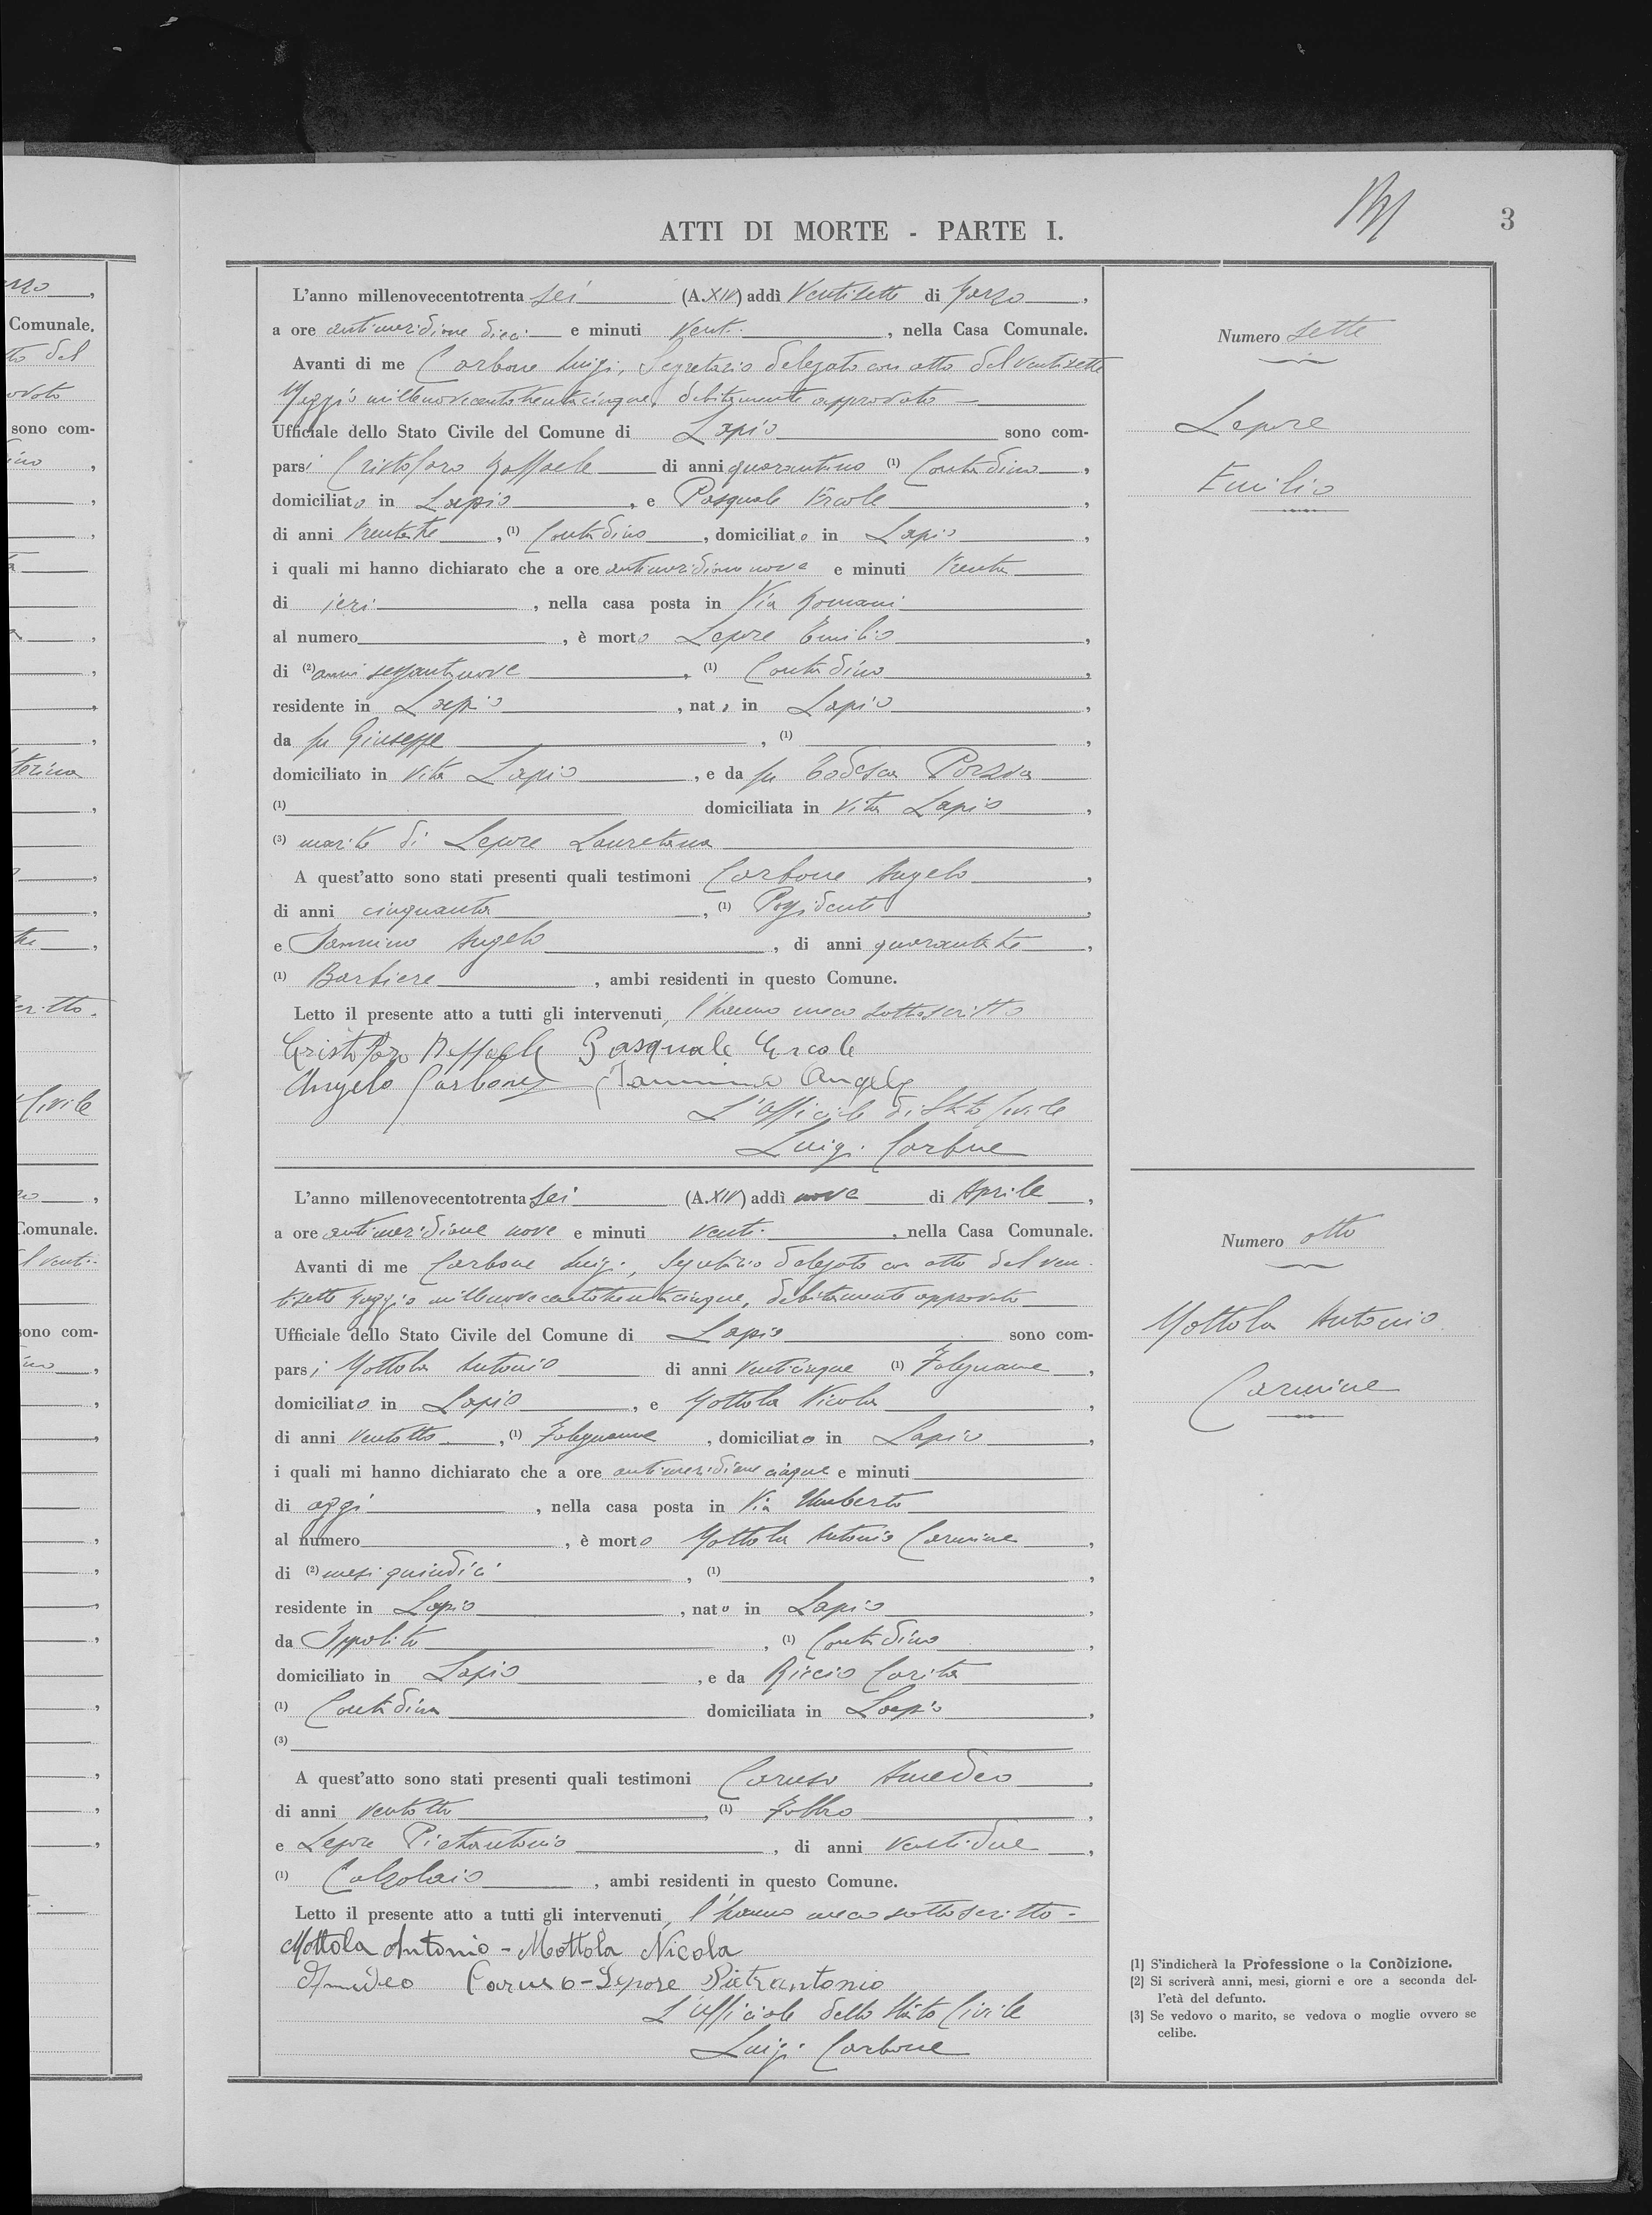 3
ATTI DI MORTE - PARTE I.
L'anno millenovecentotrenta sei (A. XIV) addì ventisette di Marzo,
a ore antimeridiane dieci e minuti venti, nella Casa Comunale.
Avanti di me Carbone Luigi, Segretario delegato con atto del ventisette
Maggio millenovecentotrentacinque, debitamente approvato
Ufficiale dello Stato Civile del Comune di Lapio sono com-
parsi Cristofaro Raffaele di anni quarantuno (1) Contadino,
domiciliato in Lapio, e Pasquale Ercole,
di anni trentatre, (1) Contadino, domiciliato in Lapio,
i quali mi hanno dichiarato che a ore antimeridiane nove e minuti trenta
di ieri, nella casa posta in Via Romani
al numero, è morto Lepore Emilio,
di (2) anni sessantanove, (1) Contadino,
residente in Lapio, nato in Lapio,
da fu Giuseppe, (1),
domiciliato in vita Lapio, e da fu Todesca Porzia
(1) domiciliata in vita Lapio,
(3) marito di Lepore Lauretana
A quest'atto sono stati presenti quali testimoni Carbone Angelo,
di anni cinquanta, (1) Possidente,
e Iannino Angelo, di anni quarantatre,
(1) Barbiere, ambi residenti in questo Comune.
Letto il presente atto a tutti gli intervenuti, l'hanno meco sottoscritto
Cristofaro Raffaele Pasquale Ercole
Angelo Carbone Iannino Angelo
L'Ufficiale di Stato Civile
Luigi Carbone
Numero sette
Lepore
Emilio
L'anno millenovecentotrenta sei (A. XIV) addì nove di Aprile,
a ore antimeridiane nove e minuti venti, nella Casa Comunale.
Avanti di me Carbone Luigi, Segretario delegato con atto del ven-
tisette Maggio millenovecentotrentacinque, debitamente approvato
Ufficiale dello Stato Civile del Comune di Lapio sono com-
parsi Mottola Antonio di anni venticinque (1) Falegname,
domiciliato in Lapio, e Mottola Nicola,
di anni ventotto, (1) Falegname, domiciliato in Lapio,
i quali mi hanno dichiarato che a ore antimeridiane cinque e minuti
di oggi, nella casa posta in Via Umberto
al numero, è morto Mottola Antonio Carmine,
di (2) mesi quindici, (1),
residente in Lapio, nato in Lapio,
da Ippolito, (1) Contadino,
domiciliato in Lapio, e da Riccio Carita
(1) Contadina domiciliata in Lapio,
(3)
A quest'atto sono stati presenti quali testimoni Caruso Amedeo,
di anni ventotto, (1) Fabbro,
e Lepore Pietrantonio, di anni ventidue,
(1) Calzolaio, ambi residenti in questo Comune.
Letto il presente atto a tutti gli intervenuti, l'hanno meco sottoscritto -
Mottola Antonio - Mottola Nicola
Amideo Caruso - Lepore Pietrantonio
L'Ufficiale dello Stato Civile
Luigi Carbone
Numero otto
Mottola Antonio
Carmine
[1] S'indicherà la Professione o la Condizione.
[2] Si scriverà anni, mesi, giorni e ore a seconda del-
l'età del defunto.
[3] Se vedovo o marito, se vedova o moglie ovvero se
celibe.